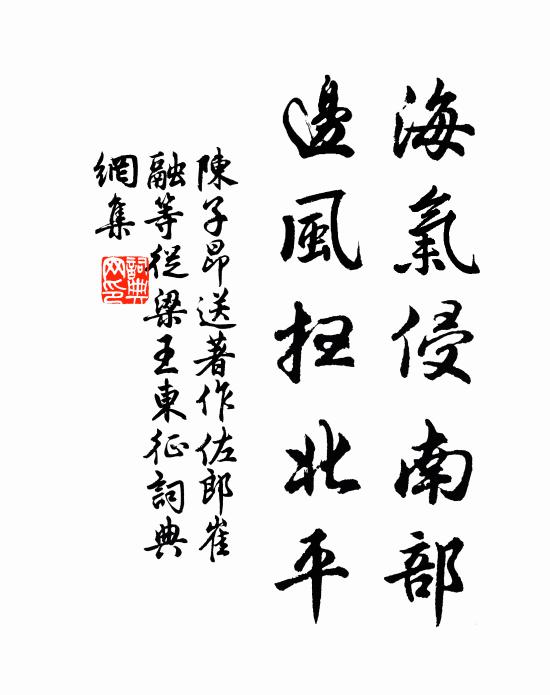 海氣侵南部
邊風掃北平
陳子昂送著作佐郎崔
融等從梁王東征詞典
網集
詞典網印